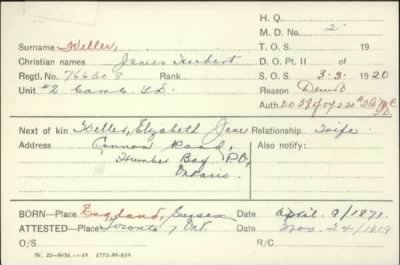 H. Q.
M. D. No. 2
Surname Weller,
T. O. S. 19
Christian names James Herbert
D. O. Pt. II of
Regtl. No. 766308 Rank
S. O. S. 3-3- 1920
Unit #2
Reason Demob
Auth. DO
Next of kin Weller, Elizabeth Jane Relationship Wife
Address Cannon Road, Also notify:
Humber Bay P.O,
Ontario.
BORN—Place England, Sussex Date April. 9/1871.
ATTESTED—Place Toronto, Ont. Date Nov. 24/1919
O/S R/C